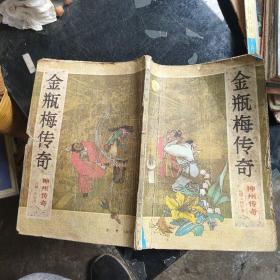 金瓶梅传奇
神州传奇
金瓶梅传奇
神州传奇